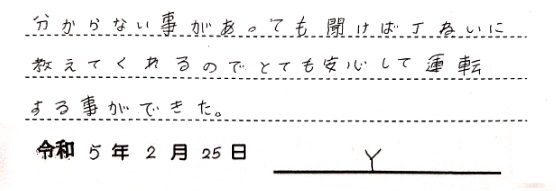 分からない事があっても聞けば丁ねいに
教えてくれるのでとても安心して運転
する事ができた。
令和 5 年 2 月 25 日 Y